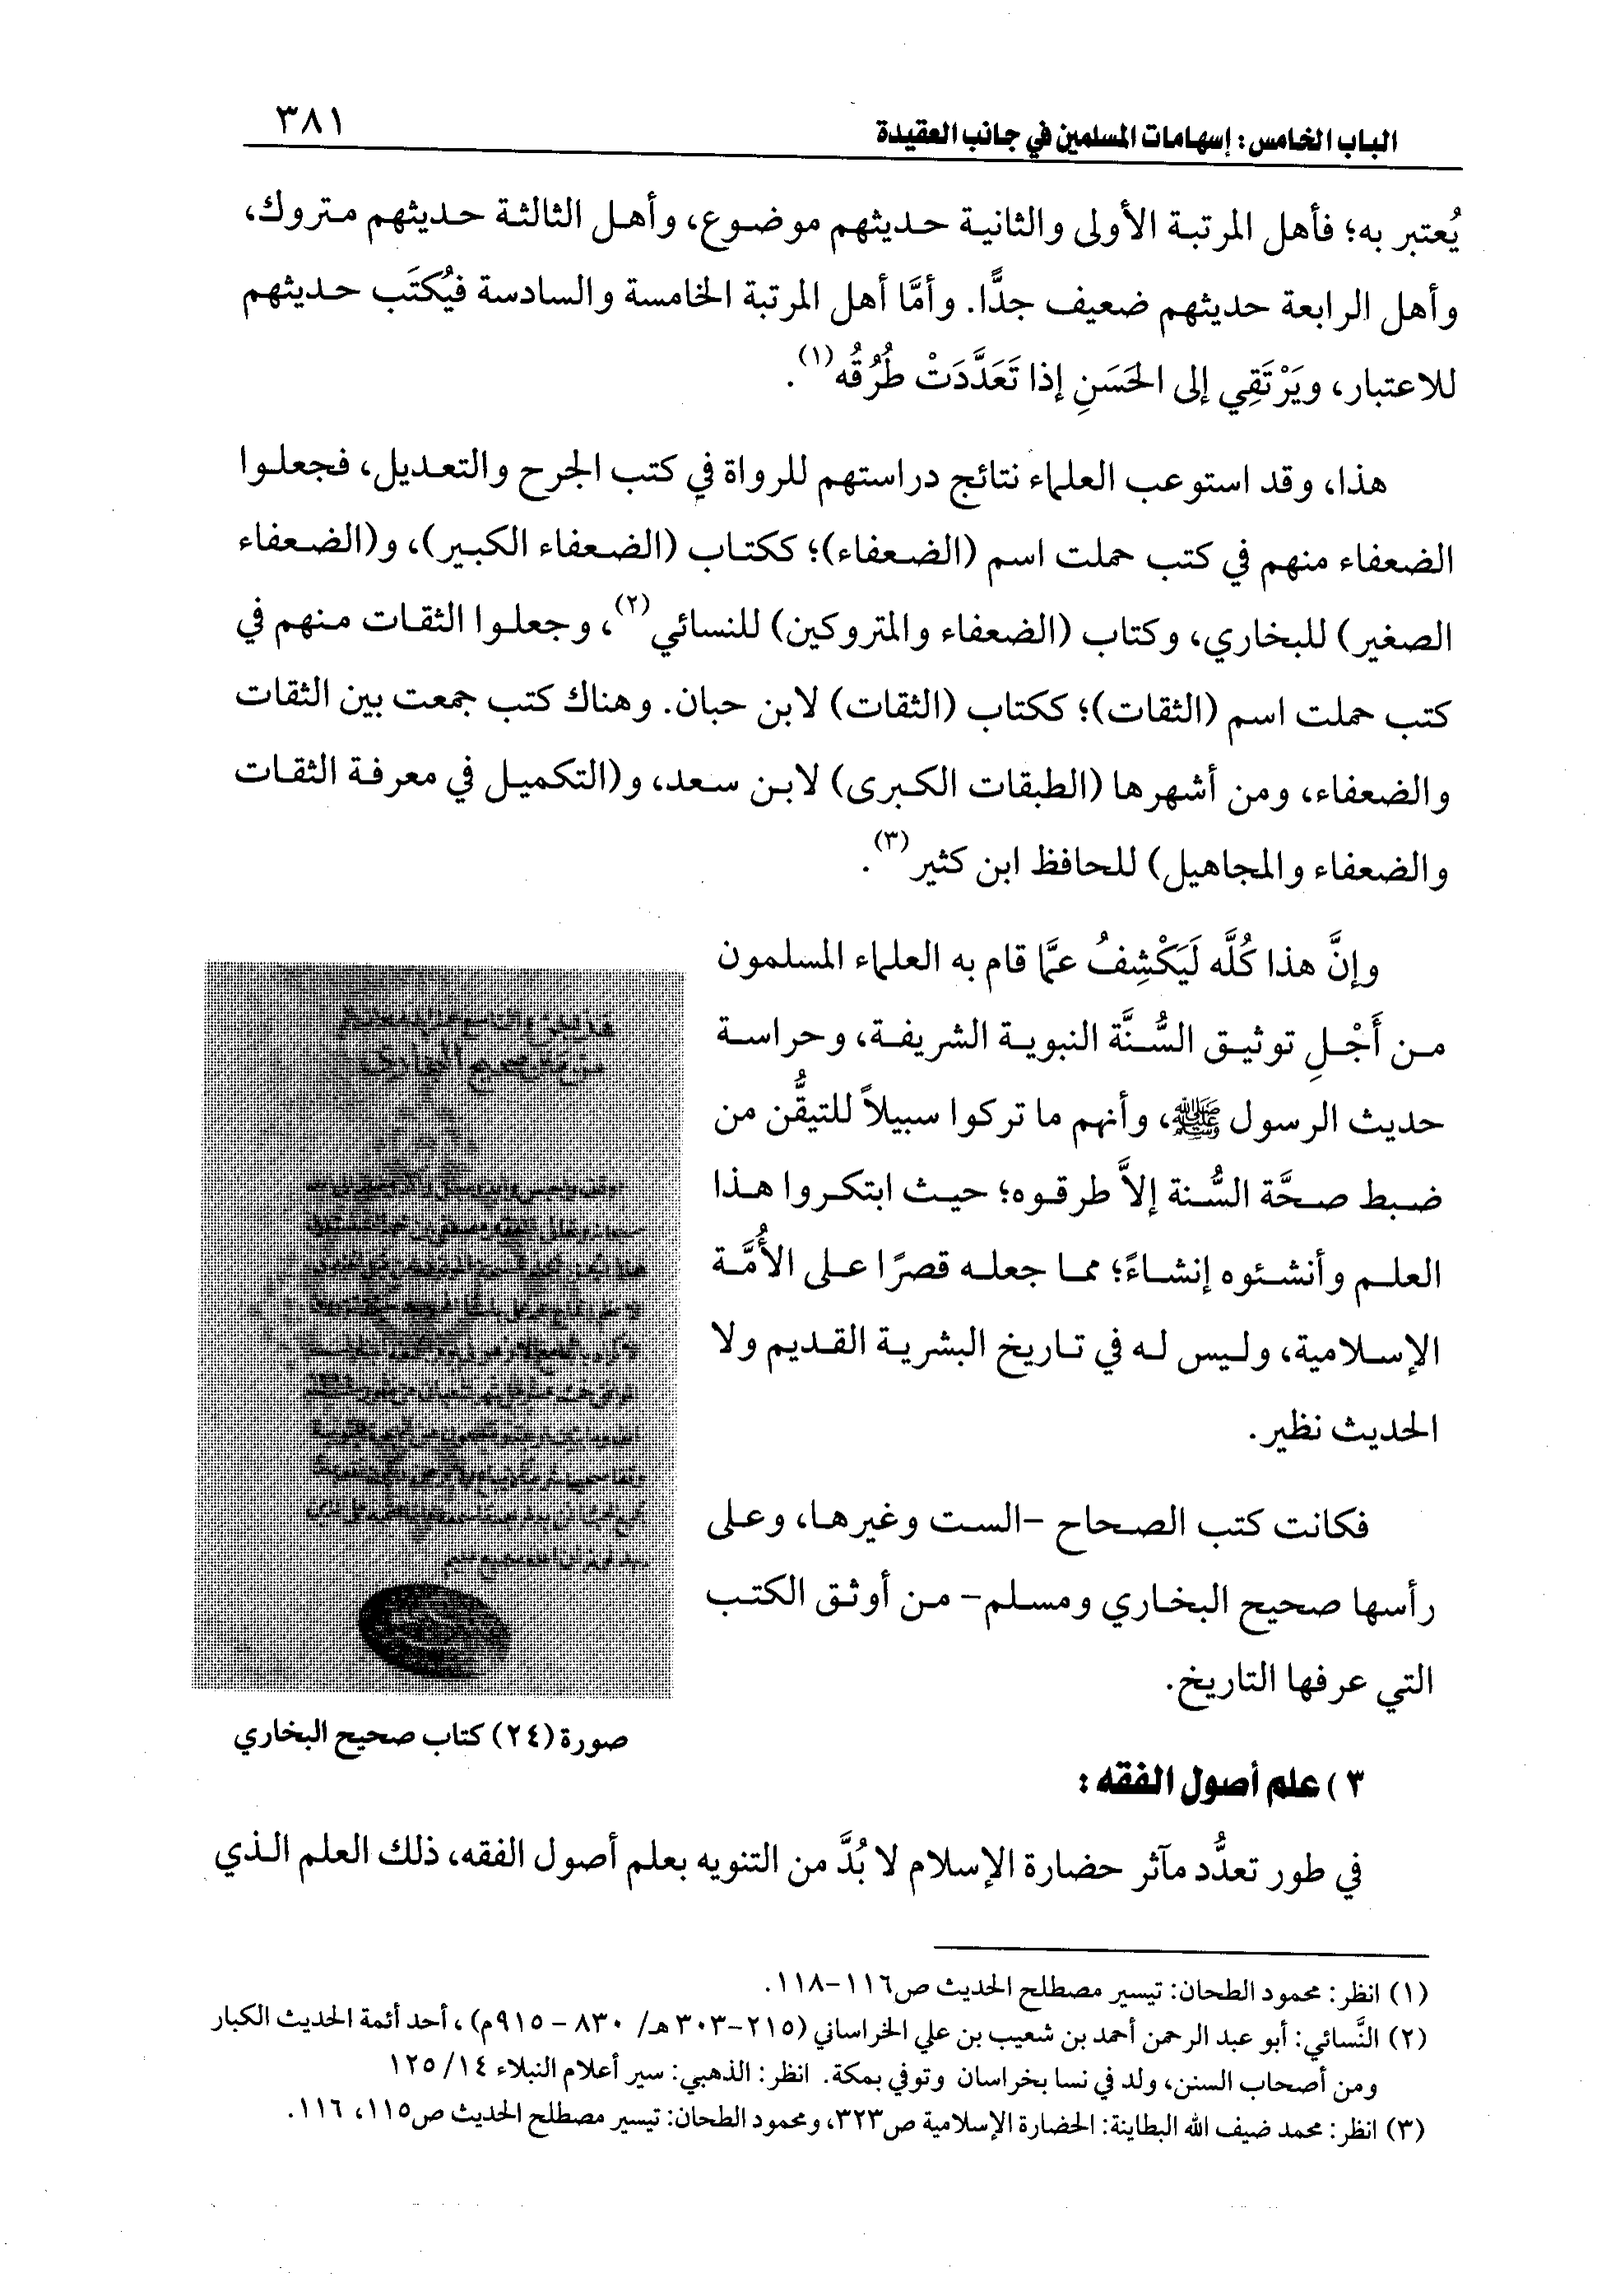 الباب الخامس: إسهامات المسلمين في جانب العقيدة
٣٨١
يُعتبر به؛ فأهل المرتبة الأولى والثانية حديثهم موضوع، وأهل الثالثة حديثهم متروك،
وأهل الرابعة حديثهم ضعيف جدًّا. وأمَّا أهل المرتبة الخامسة والسادسة فيُكتَب حديثهم
للاعتبار، ويَرْتَقِي إلى الحَسَنِ إذا تَعَدَّدَتْ طُرُقُه(١).
هذا، وقد استوعب العلماء نتائج دراستهم للرواة في كتب الجرح والتعديل، فجعلوا
الضعفاء منهم في كتب حملت اسم (الضعفاء)؛ ككتاب (الضعفاء الكبير)، و(الضعفاء
الصغير) للبخاري، وكتاب (الضعفاء والمتروكين) للنسائي(٢)، وجعلوا الثقات منهم في
كتب حملت اسم (الثقات)؛ ككتاب (الثقات) لابن حبان. وهناك كتب جمعت بين الثقات
والضعفاء، ومن أشهرها (الطبقات الكبرى) لابن سعد، و(التكميل في معرفة الثقات
والضعفاء والمجاهيل) للحافظ ابن كثير(٣).
وإنَّ هذا كُلَّه لَيَكْشِفُ عمَّا قام به العلماء المسلمون
من أَجْلِ توثيق السُّنَّة النبوية الشريفة، وحراسة
حديث الرسول ﷺ، وأنهم ما تركوا سبيلاً للتيقُّن من
ضبط صحَّة السُّنة إلاَّ طرقوه؛ حيث ابتكروا هذا
العلم وأنشئوه إنشاءً؛ مما جعله قصرًا على الأُمَّة
الإسلامية، وليس له في تاريخ البشرية القديم ولا
الحديث نظير.
فكانت كتب الصحاح -الست وغيرها، وعلى
رأسها صحيح البخاري ومسلم- من أوثق الكتب
التي عرفها التاريخ.
صورة (٢٤) كتاب صحيح البخاري
٣) علم أصول الفقه:
في طور تعدُّد مآثر حضارة الإسلام لا بُدَّ من التنويه بعلم أصول الفقه، ذلك العلم الذي
(١) انظر: محمود الطحان: تيسير مصطلح الحديث ص١١٦-١١٨.
(٢) النَّسائي: أبو عبد الرحمن أحمد بن شعيب بن علي الخراساني (٢١٥-٣٠٣هـ/ ٨٣٠ - ٩١٥م)، أحد أئمة الحديث الكبار
ومن أصحاب السنن، ولد في نسا بخراسان وتوفي بمكة. انظر: الذهبي: سير أعلام النبلاء ١٤/ ١٢٥
(٣) انظر: محمد ضيف الله البطاينة: الحضارة الإسلامية ص٣٢٣، ومحمود الطحان: تيسير مصطلح الحديث ص١١٥، ١١٦.